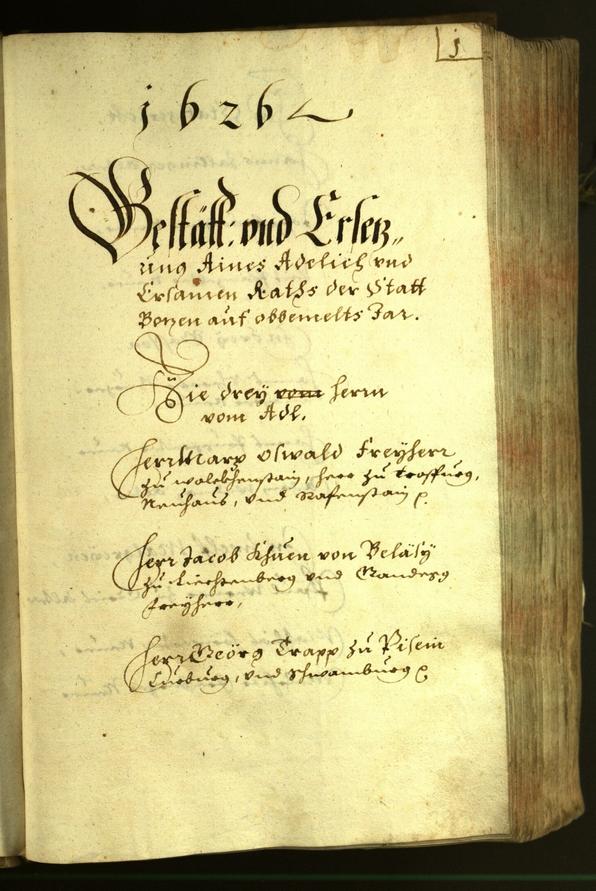 1
1626
Bestätt: vnd Ersetz„
ung Aines Adelich vnd
Ersamen Raths der Statt
Botzen auf obbemelts Jar.
Die drey vom herrn
vom Adl.
Herr Marx Oswald Freyherr
zu wolckhenstain, herr zu Trosspurg,
Neuhauß, vnd Rafenstain
Herr Jacob Khuen von Beläsÿ
zu Liechtenberg vnd Gandegg
freÿherr,
Herr Geörg Trapp zu Pisein
Curburg, vnd Schwamburg